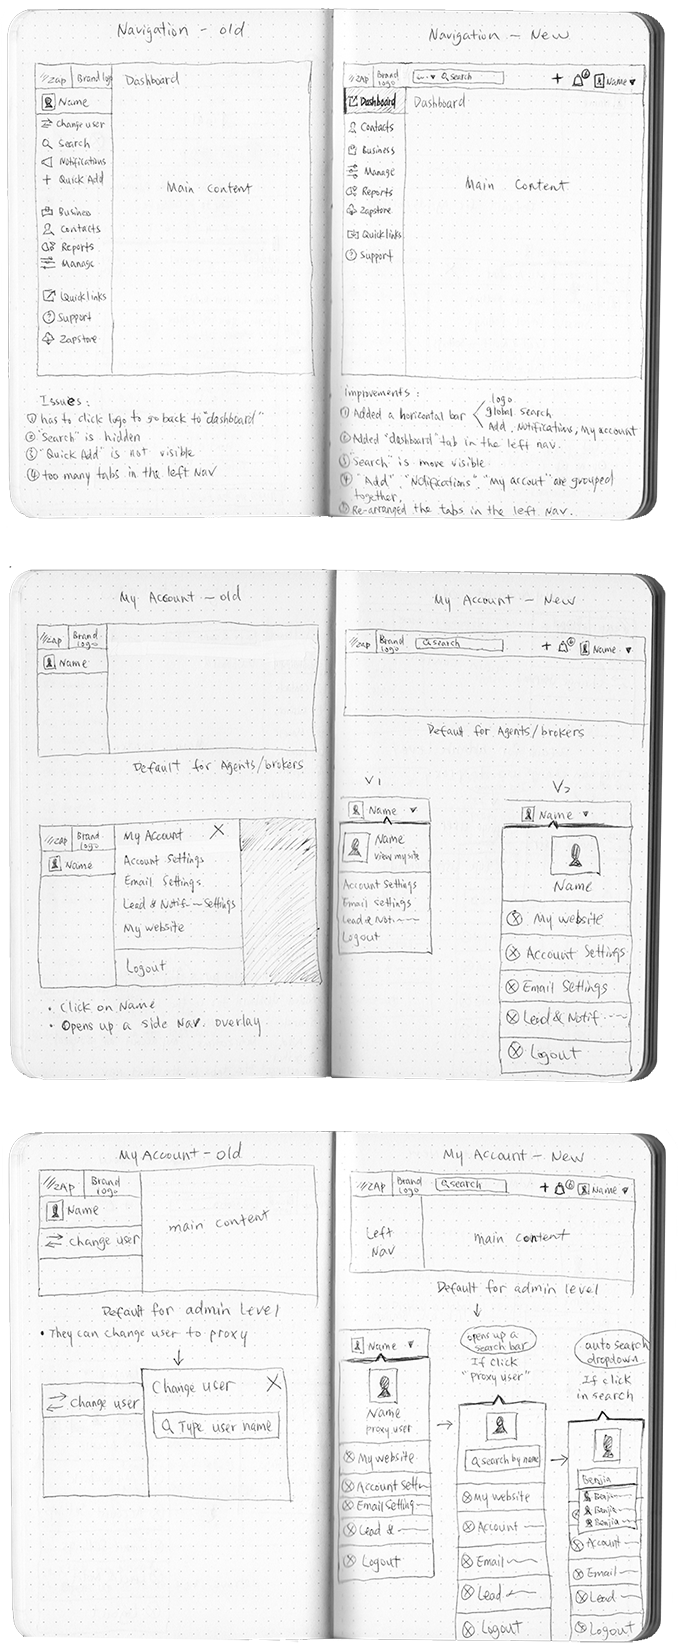 Navigation - old
//zap Brand logo Dashboard
Name
Change user
Search
Notifications
Quick Add
Main content
Business
Contacts
Reports
Manage
Quicklinks
Support
Zapstore
Issues:
① has to click logo to go back to "dashboard"
② "Search" is hidden
③ "Quick Add" is not visible
④ too many tabs in the left Nav
Navigation - New
//zap Brand logo Search + 6 Name ▼
Dashboard Dashboard
Contacts
Business
Manage
Reports
Zapstore
Quicklinks
Support
Main content
improvements:
① Added a horizontal bar < logo
global search
Add, Notifications, My account
② Added "dashboard" tab in the left nav.
③ "Search" is move visible
④ "Add", "Notifications", "My accout" are grouped
together.
⑤ Re-arranged the tabs in the left Nav.
My Account - old
//zap Brand logo
Name
Default for Agents/brokers
//zap Brand logo My Account X
Name
Account Settings
Email Settings
Lead & Notif -- Settings
My website
Logout
• Click on Name
• Opens up a side Nav. overlay
My Account - New
//zap Brand logo search + 6 Name ▼
Default for Agents/brokers
V1
Name ▼
Name
view my site
Account Settings
Email settings
Lead & Noti
Logout
V2
Name ▼
Name
My website
Account Settings
Email Settings
Lead & Notif. ---
Logout
My Account - old
//ZAP Brand logo
Name
Change user
main content
Default for admin Level
• They can change user to proxy
Change user
Change user X
Type user name
My Account - New
//ZAP Brand logo search + 6 Name ▼
Left Nav
main content
Default for admin level
Name ▼
Name
proxy user
My website
Account Sett
Email Setting
Lead &
Logout
opens up a
search bar
If click
"Proxy user"
search by name
My website
Account
Email
Lead
Logout
auto search
dropdown
If click
in search
Benjia
Benji
Benjia
Benjia
Account
Email
Lead
Logout